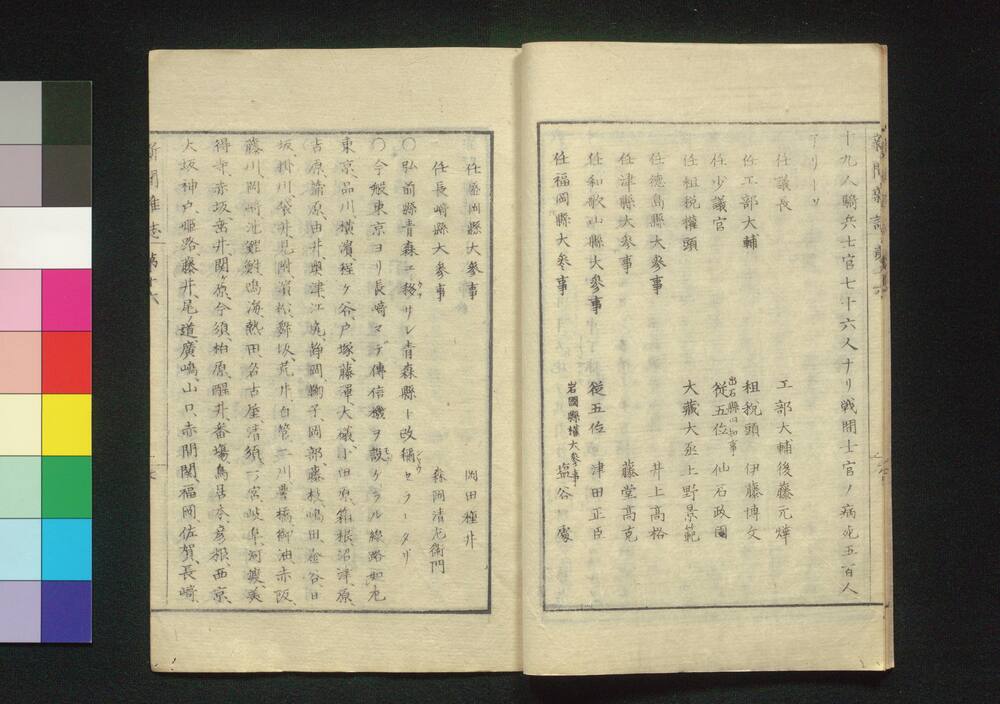 十九人騎兵士官七十六人ナリ戦鬪士官ノ病死五百人
アリトソ
任議長　工部大輔後藤元燁
任工部大輔　租税頭　伊藤博文
任少議官　出石縣旧知事 従五位　仙石政固
任租税權頭　大藏大丞上野景範
任徳島縣大參事　井上高格
任津縣大參事　藤堂高克
任和歌山縣大參事　従五位　津田正臣
任福岡縣大參事　岩國縣權大參事 塩谷　處
任盛岡縣大參事　岡田種
任長崎縣大參事　森岡清左衞門
〇弘前縣青森ニ移サレ青森縣ト改稱セラレタリ
〇今般東京ヨリ長崎マデ傳信機ヲ設ケラル線路如左
東京、品川、横濱、程ケ谷、戸塚、藤澤、大礒、小田原、箱根、沼津、原、
吉原、蒲原、由井、奥津、江尻、静岡、鞠子、岡部、藤枝、嶋田、金谷、日
坂、掛川、袋井、見附、濱松、舞坂、荒井、白菅、二川、豊橋、御油、赤阪、
藤川、岡崎、池鯉鮒、鳴海、熱田、名古屋、清須、一ノ宮、岐阜、河渡、美
得寺、赤坂、垂井、関ケ原、今須、柏原、醒井、番塲、鳥居本、彦根、西京、
大坂、神戸、姫路、藤井、尾ノ道、廣嶋、山口、赤間関、福岡、佐賀、長崎、
新聞雜誌　第十六